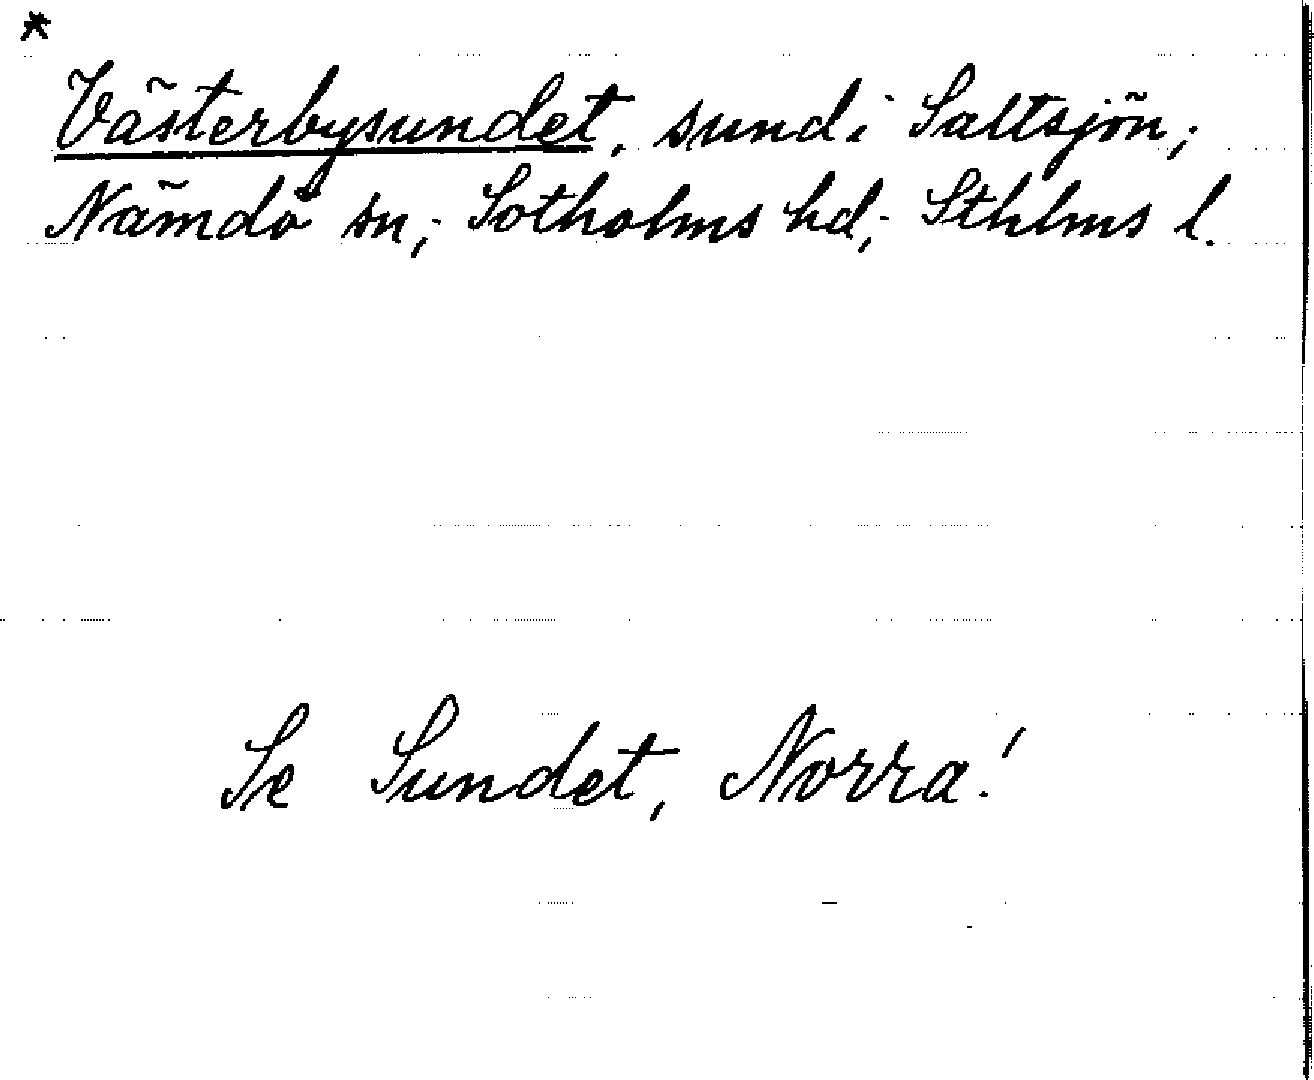 *
Västerbysundet, sund i Saltsjön;
Nämdö sn; Sotholms hd; Sthlms l.
Se Sundet, Norra!